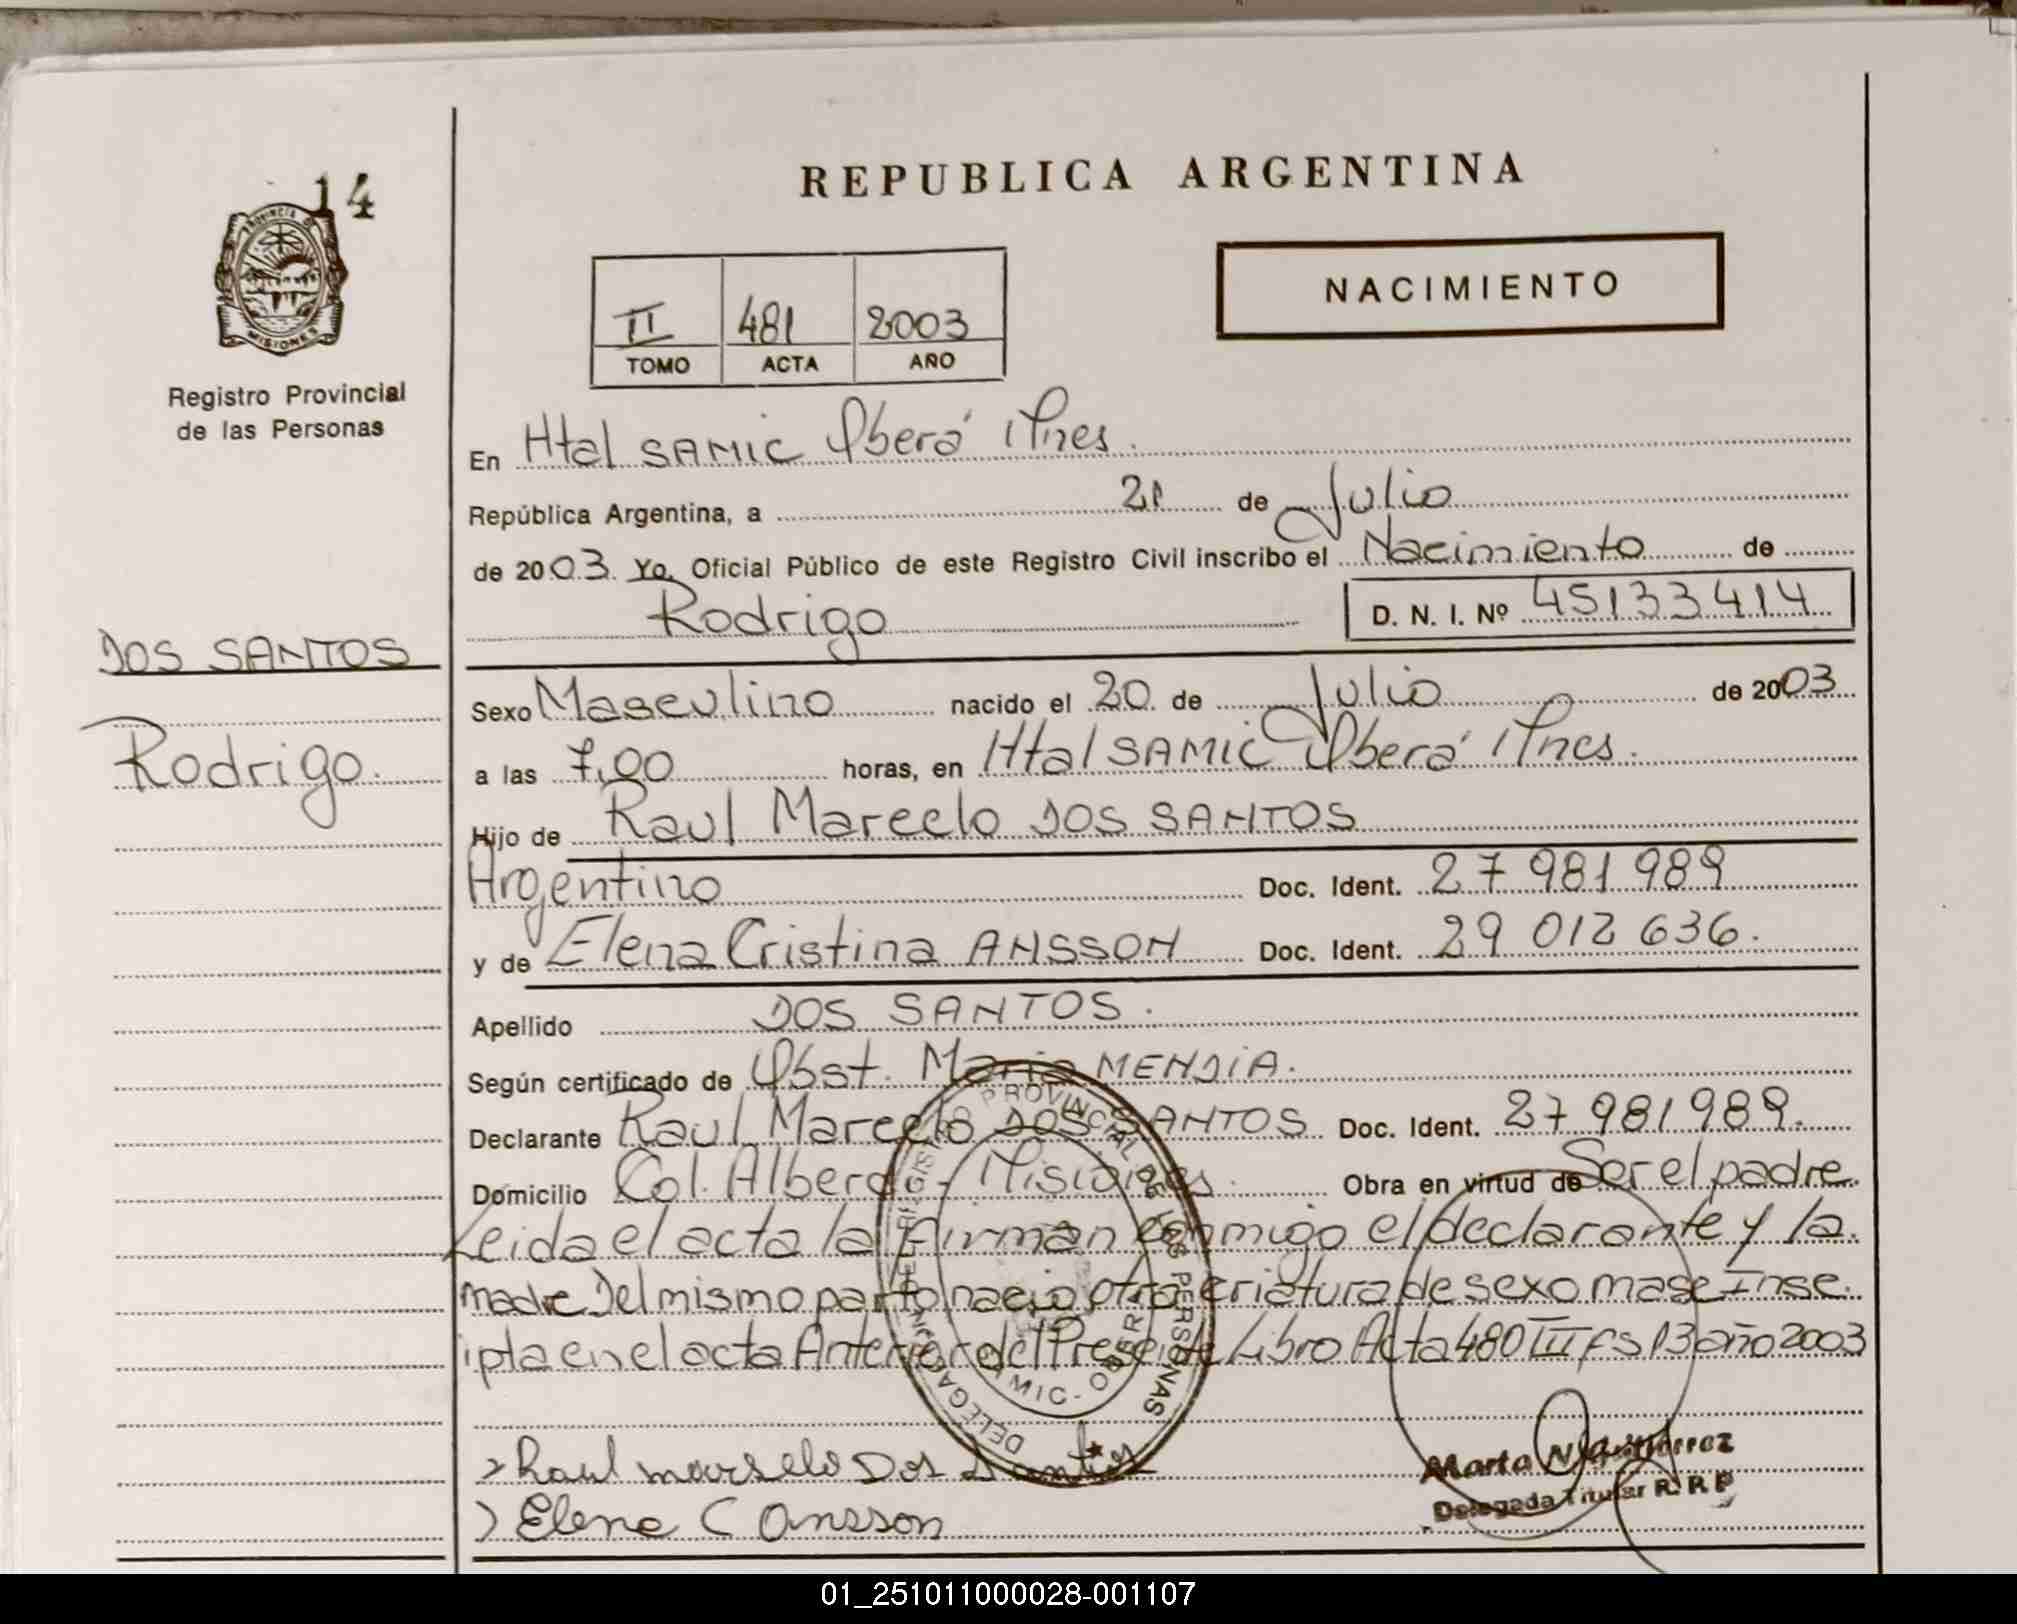 14
PROVINCIA DE
MISIONES
Registro Provincial
de las Personas
REPUBLICA ARGENTINA
NACIMIENTO
II 481 2003
TOMO ACTA AÑO
En Htal SAMIC Oberá Mnes.
República Argentina, a 21 de Julio
de 2003. Yo, Oficial Público de este Registro Civil inscribo el Nacimiento de
Rodrigo D. N. I. Nº 45133414
DOS SANTOS
Rodrigo.
Sexo Masculino nacido el 20 de Julio de 2003
a las 7,00 horas, en Htal SAMIC Oberá Mnes.
Hijo de Raul Marcelo DOS SANTOS
Argentino Doc. Ident. 27 981 989
y de Elena Cristina ANSSON Doc. Ident. 29 012 636.
Apellido DOS SANTOS.
Según certificado de Obst. Maria MENDIA.
Declarante Raul Marcelo DOS SANTOS Doc. Ident. 27 981 989.
Domicilio Col. Alberdi - Misiones. Obra en virtud de Ser el padre.
Leida el acta la firman conmigo el declarante y la
madre Del mismo parto nacio otra criatura de sexo masc Insc
ipta en el acta Anterior del Presente Libro Acta 480 III Fs 13 año 2003
Raul marselo Dos Santos
Elena C Ansson
Marta N Gutierrez
Delegada Titular R. R P
PROVINCIAL DE LAS PERSONAS
DELEGACION
SAMIC - OBERA
01_251011000028-001107